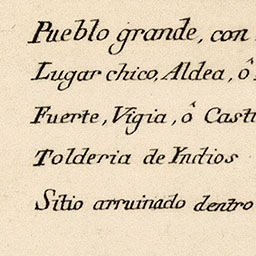 Pueblo grande, con
Lugar chico, Aldea, ô
Fuerte, Vigia, ô Casti
Tolderia de Yndios
Sitio arruinado dentro